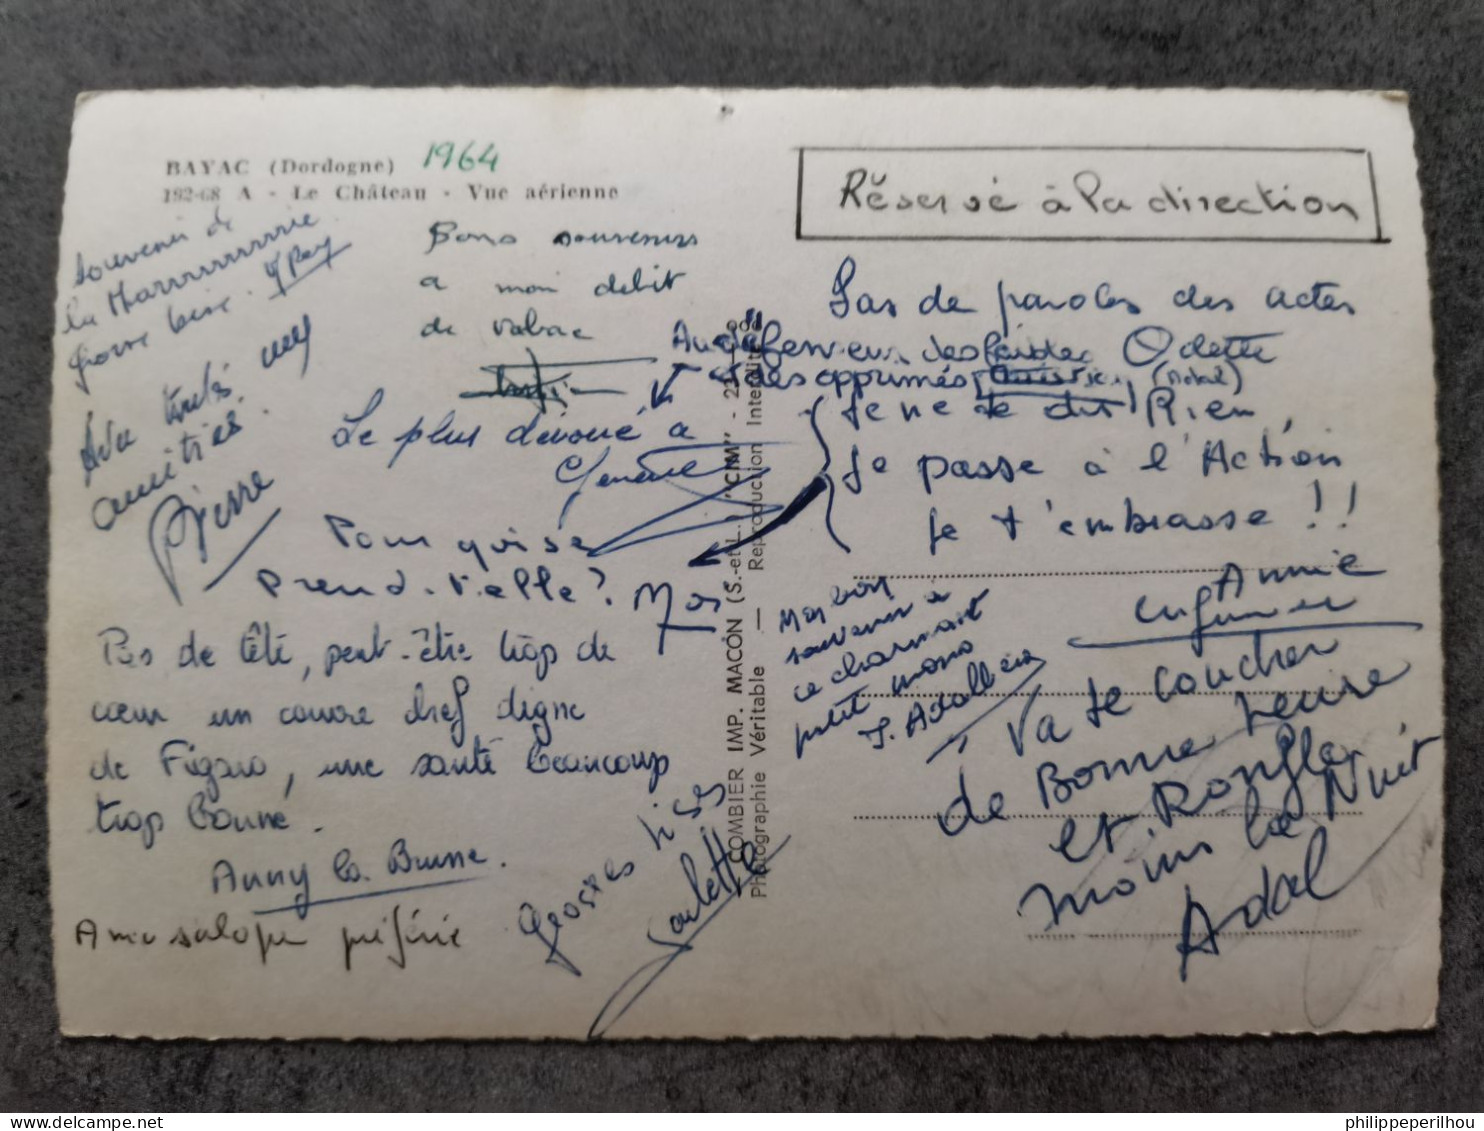 BAYAC (Dordogne) 1964
192-68 A - Le Château - Vue aérienne
Souvenir de
la Marrrrrrrrie
grosse bise.
Bons souvenirs
a mon debit
de tabac
mes
amitiés
Pierre
Le plus dévoué à
Pour qui se
prend-t-elle?
Pas de tête, peut-être trop de
cœur un couvre chef digne
de Figaro, une santé beaucoup
trop bonne.
Anny la Brune.
A ma salope préférée
Grosses bises
Paulette
COMBIER IMP. MACON (S.-et-L. "CIM" -
Photographie Véritable — Reproduction Interdite
Réservé à la direction
Pas de paroles des actes
Odette
Au défenseur des faibles
des opprimés
(Adal)
Je ne te dis Rien,
Je passe à l'Action
Je t'embrasse !!
Annie
Mon bon
souvenir à
ce charmant
petit mono
Va te coucher
de Bonne heure
et Ronfler
moins la Nuit
Adal
philippeperilhou